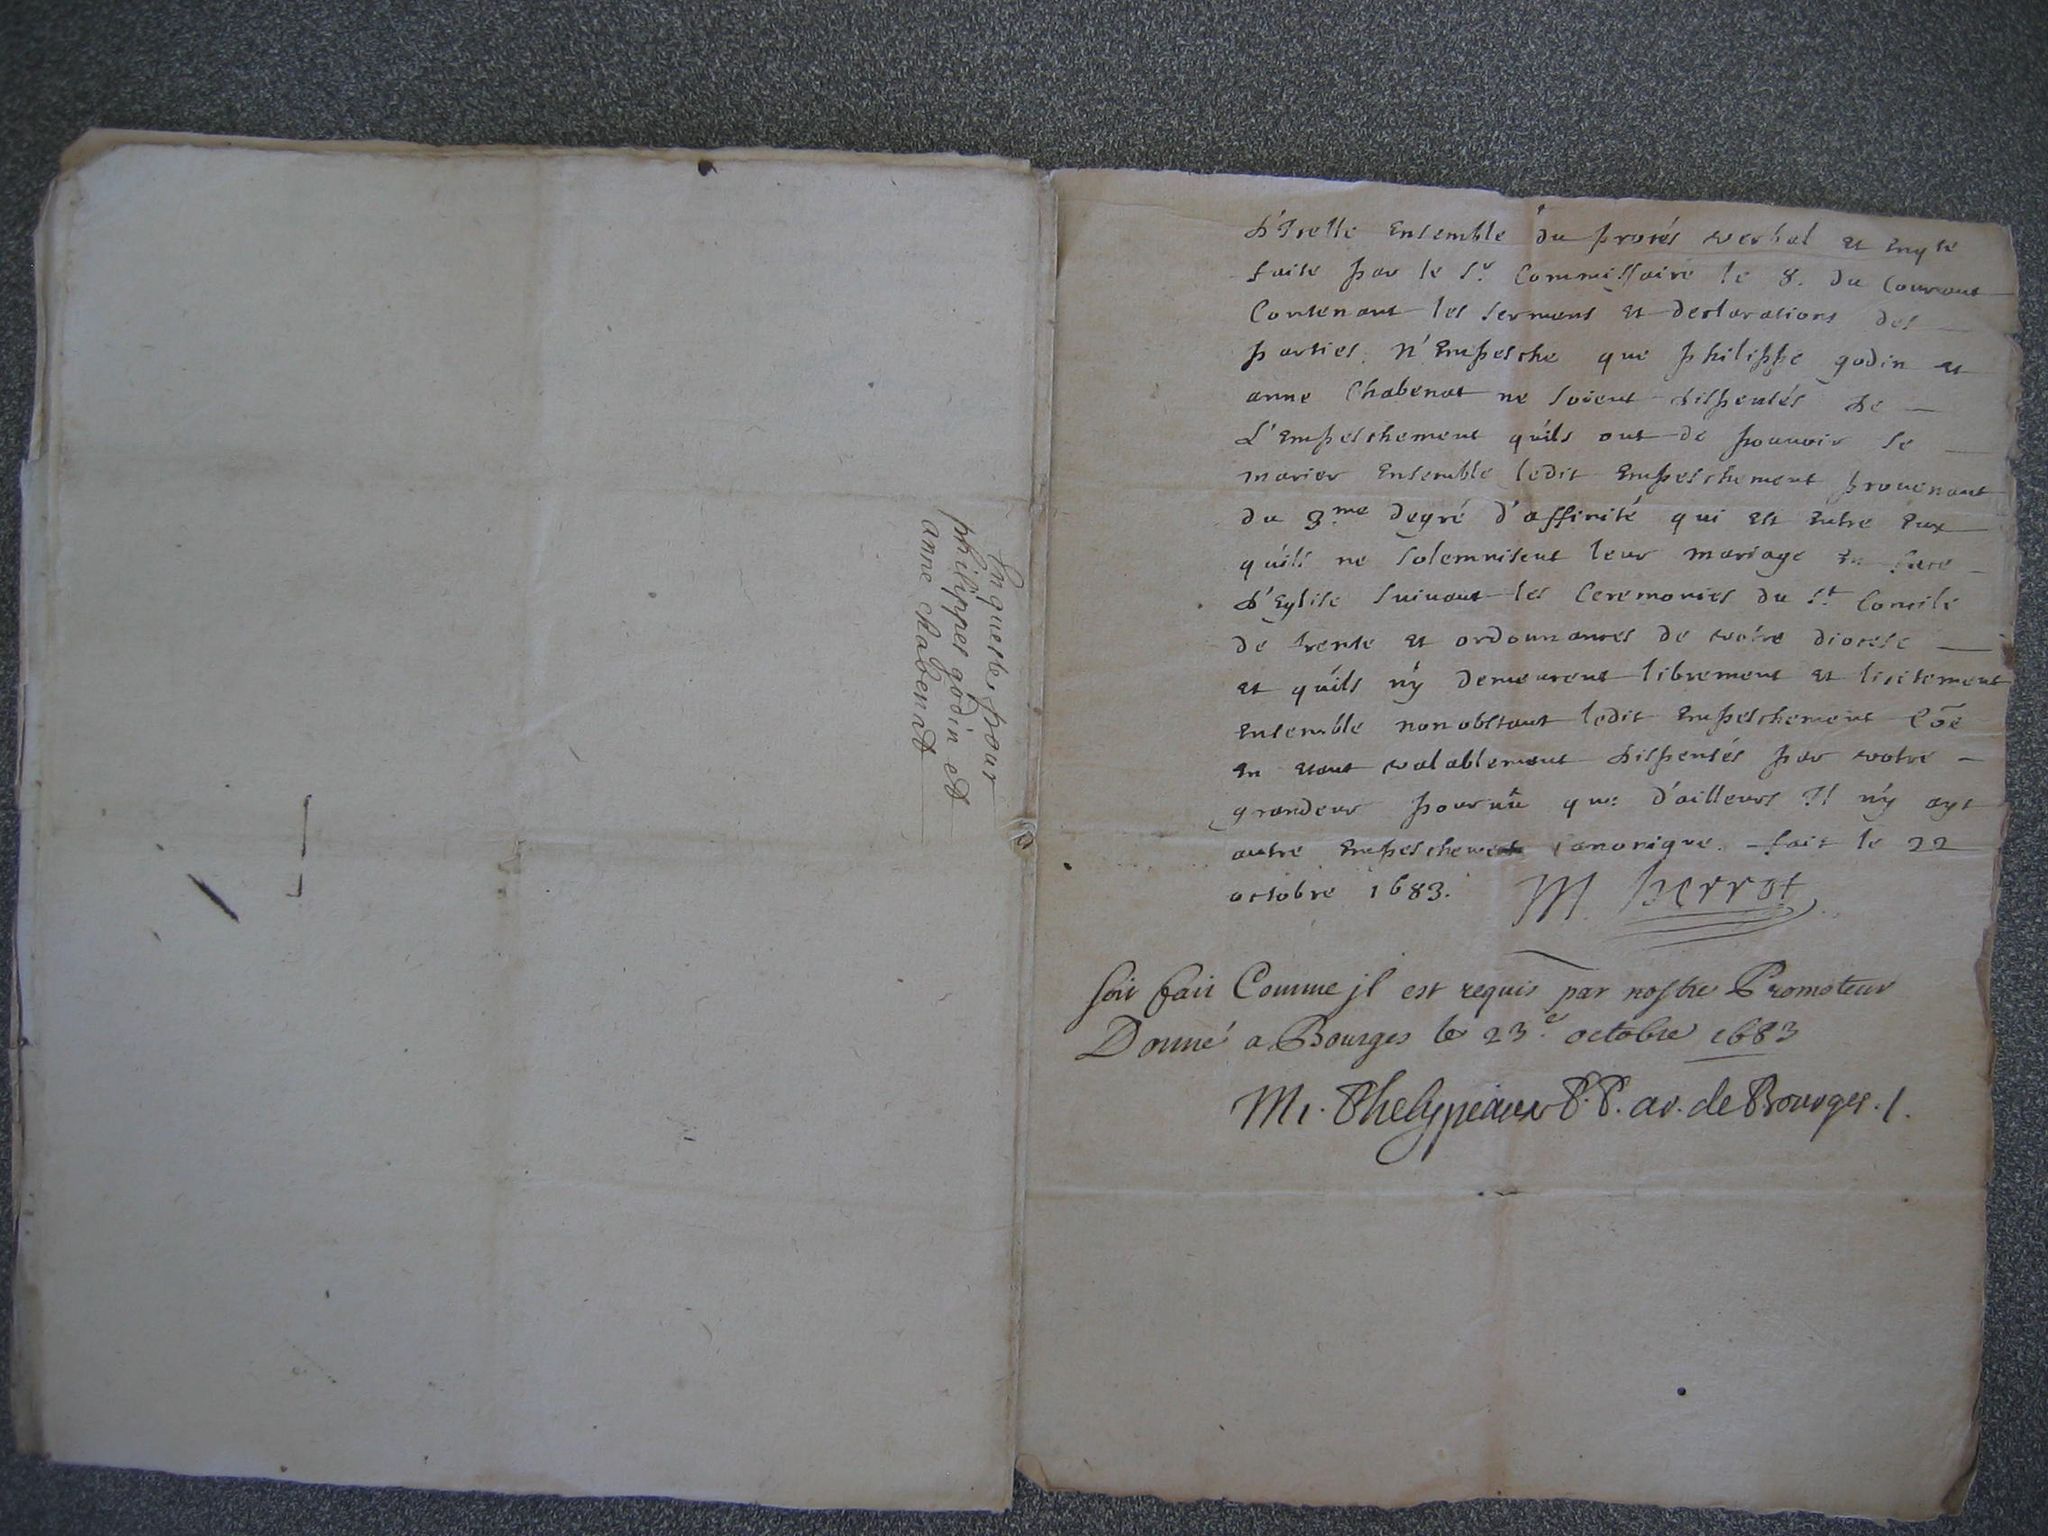 Enqueste pour
philippes godin et
anne chabenat
d'Icelle Ensemble du procés verbal et Enqte
faite par le Sr. Commissaire le 8. du Courant
Contenant les sermens et declarations des
parties. N'Empesche que philippe godin et
anne Chabenat ne soient dispensés de
L'Empeschement qu'ils ont de pouuoir se
marier Ensemble ledit Empeschement prouenant
du 3.me degré d'affinité qui est Entre Eux
qu'ils ne solemnisent leur mariage En face
d'Eglise suiuant les Ceremonies du St. Concile
de trente et ordonnances de votre diocese
et qu'ils n'y demeurent librement et licitement
Ensemble nonobstant ledit Empeschement Cōe
En etant valablement dispensés par votre
grandeur pouruû que d'ailleurs Il n'y ayt
autre Empeschement canonique. fait le 22
octobre 1683. M. perrot
soit fait Comme jl est requis par nostre Promoteur
Donné a Bourges le 23.e octobre 1683
Mi. Phelypeaux P.P. ar. de Bourges. /.